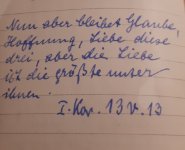 Nun aber bleibet Glaube,
Hoffnung, Liebe diese
drei, aber die Liebe
ist die größte unter
ihnen.
I. Kor. 13 v. 13